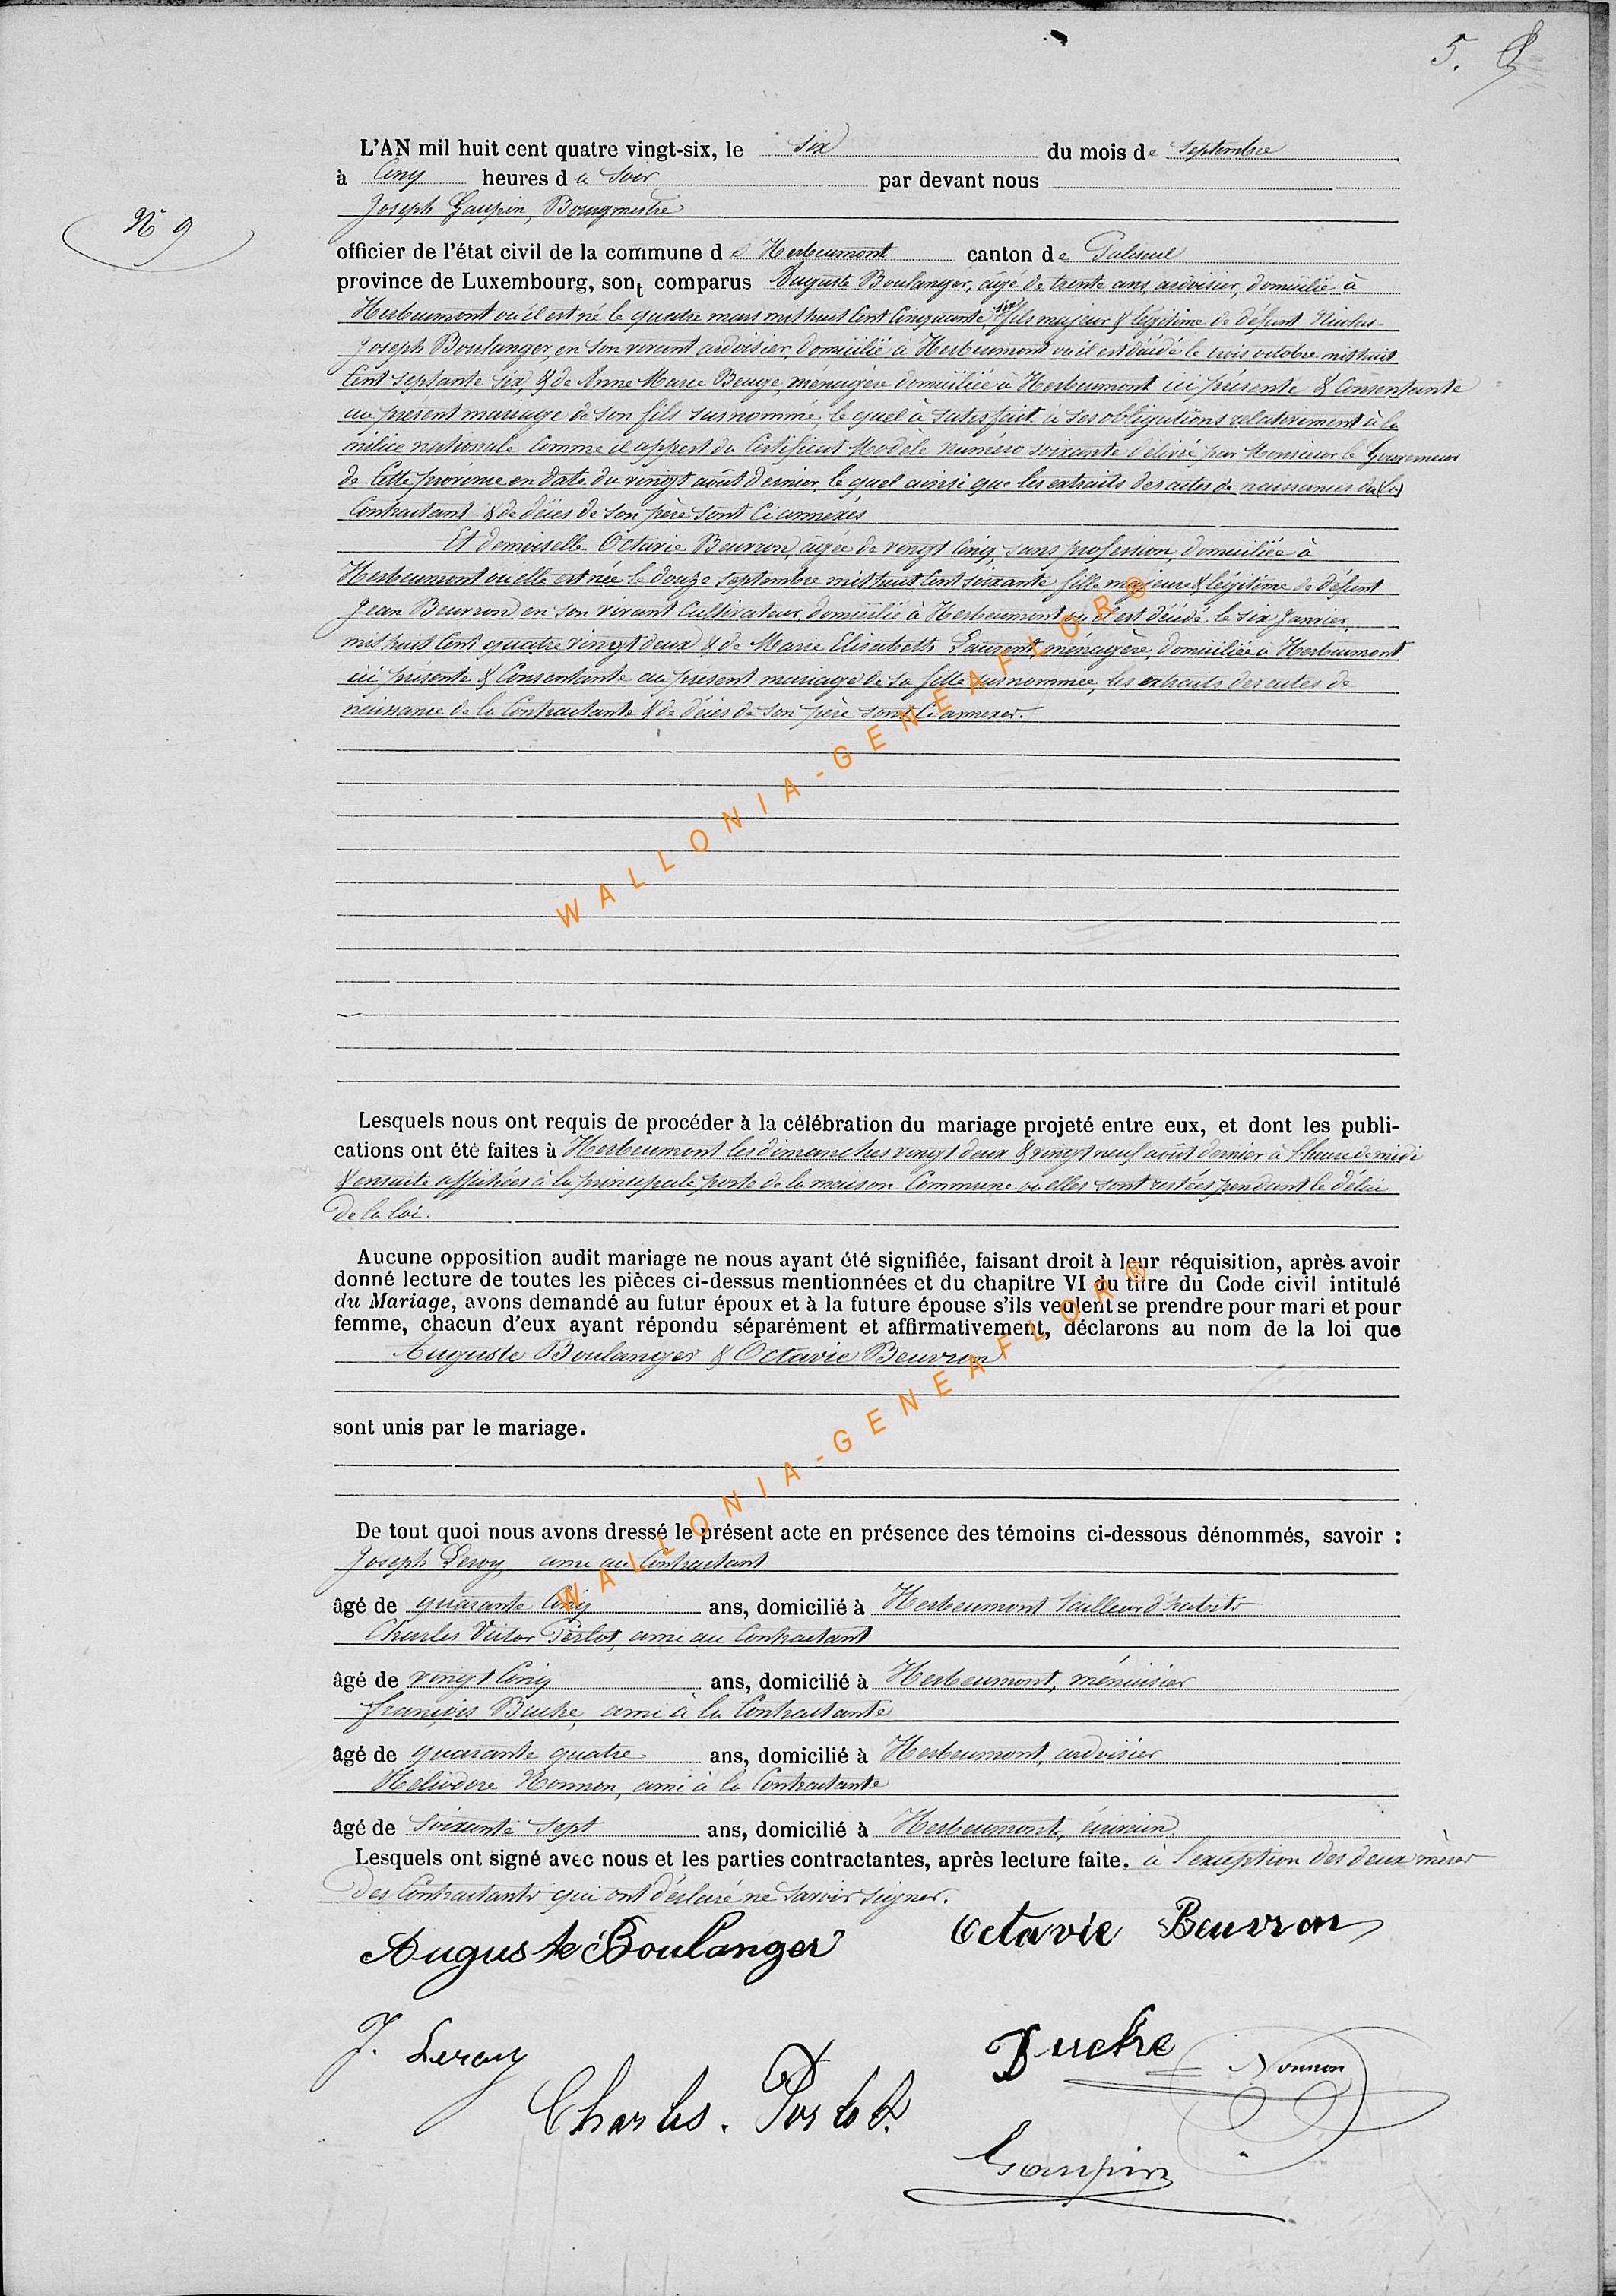 5.
L'AN mil huit cent quatre vingt-six, le six du mois de septembre
à Cinq heures du Soir par devant nous
Joseph Gaupin, Bourgmestre
N° 9
officier de l'état civil de la commune de Herbeumont canton de Paliseul
province de Luxembourg, sont comparus Auguste Boulanger, âgé de trente ans, ardoisier, domicilié à
Herbeumont où il est né le quatre mars mil huit Cent Cinquante six fils majeur & légitime de défunt Nicolas-
Joseph Boulanger en son vivant ardoisier, domicilié à Herbeumont où il est décédé le trois octobre mil huit
Cent septante six, & de Anne Marie Beuge, ménagère domiciliée à Herbeumont ici présente & Consentante
au présent mariage de son fils susnommé, le quel à satisfait à ses obligations relativement à la
milice nationale Comme il appert du Certificat Modèle numéro soixante délivré par Monsieur le Gouverneur
de Cette province en date du vingt août dernier, le quel ainsi que les extraits des actes de naissances du (la)
Contractant & de décès de son père sont Ci annexés
Et demoiselle Octavie Beuvron, âgée de vingt Cinq, sans profession, domiciliée à
Herbeumont où elle est née le douze septembre mil huit Cent soixante fille majeure & légitime de défunt
Jean Beuvron en son vivant Cultivateur, domicilié à Herbeumont où il est décédé le six Janvier,
mil huit Cent quatre vingt deux & de Marie Elisabeth Laurent, ménagère, domiciliée à Herbeumont
ici présente & Consentante au présent mariage de sa fille susnommée, les extraits des actes de
naissance de la Contractante & de décès de son père sont Ci annexer.
WALLONIA-GENEAFLOR®
Lesquels nous ont requis de procéder à la célébration du mariage projeté entre eux, et dont les publi-
cations ont été faites à Herbeumont les dimanches vingt deux & vingt neuf août dernier à l'heure de midi
& ensuite affichées à la principale porte de la maison Commune où elles sont restées pendant le délai
De la loi.
Aucune opposition audit mariage ne nous ayant été signifiée, faisant droit à leur réquisition, après avoir
donné lecture de toutes les pièces ci-dessus mentionnées et du chapitre VI du titre du Code civil intitulé
du Mariage, avons demandé au futur époux et à la future épouse s'ils veulent se prendre pour mari et pour
femme, chacun d'eux ayant répondu séparément et affirmativement, déclarons au nom de la loi que
Auguste Boulanger & Octavie Beuvron
sont unis par le mariage.
WALLONIA-GENEAFLOR®
De tout quoi nous avons dressé le présent acte en présence des témoins ci-dessous dénommés, savoir :
Joseph Leroy, ami au Contractant
âgé de quarante Cinq ans, domicilié à Herbeumont Tailleur d'habits
Charles Victor Perlot, ami au Contractant
âgé de vingt Cinq ans, domicilié à Herbeumont, ménuisier
François Buche, ami à la Contractante
âgé de quarante quatre ans, domicilié à Herbeumont, ardoisier
Héliodore Nonnon, ami à la Contractante
âgé de soixante sept ans, domicilié à Herbeumont, écrivain
Lesquels ont signé avec nous et les parties contractantes, après lecture faite. à l'exception des deux mères
Des Contractants qui ont déclaré ne savoir signer.
Auguste Boulanger Octavie Beuvron
J. Leroy Buche Nonnon
Charles. Perlot.
Gaupin